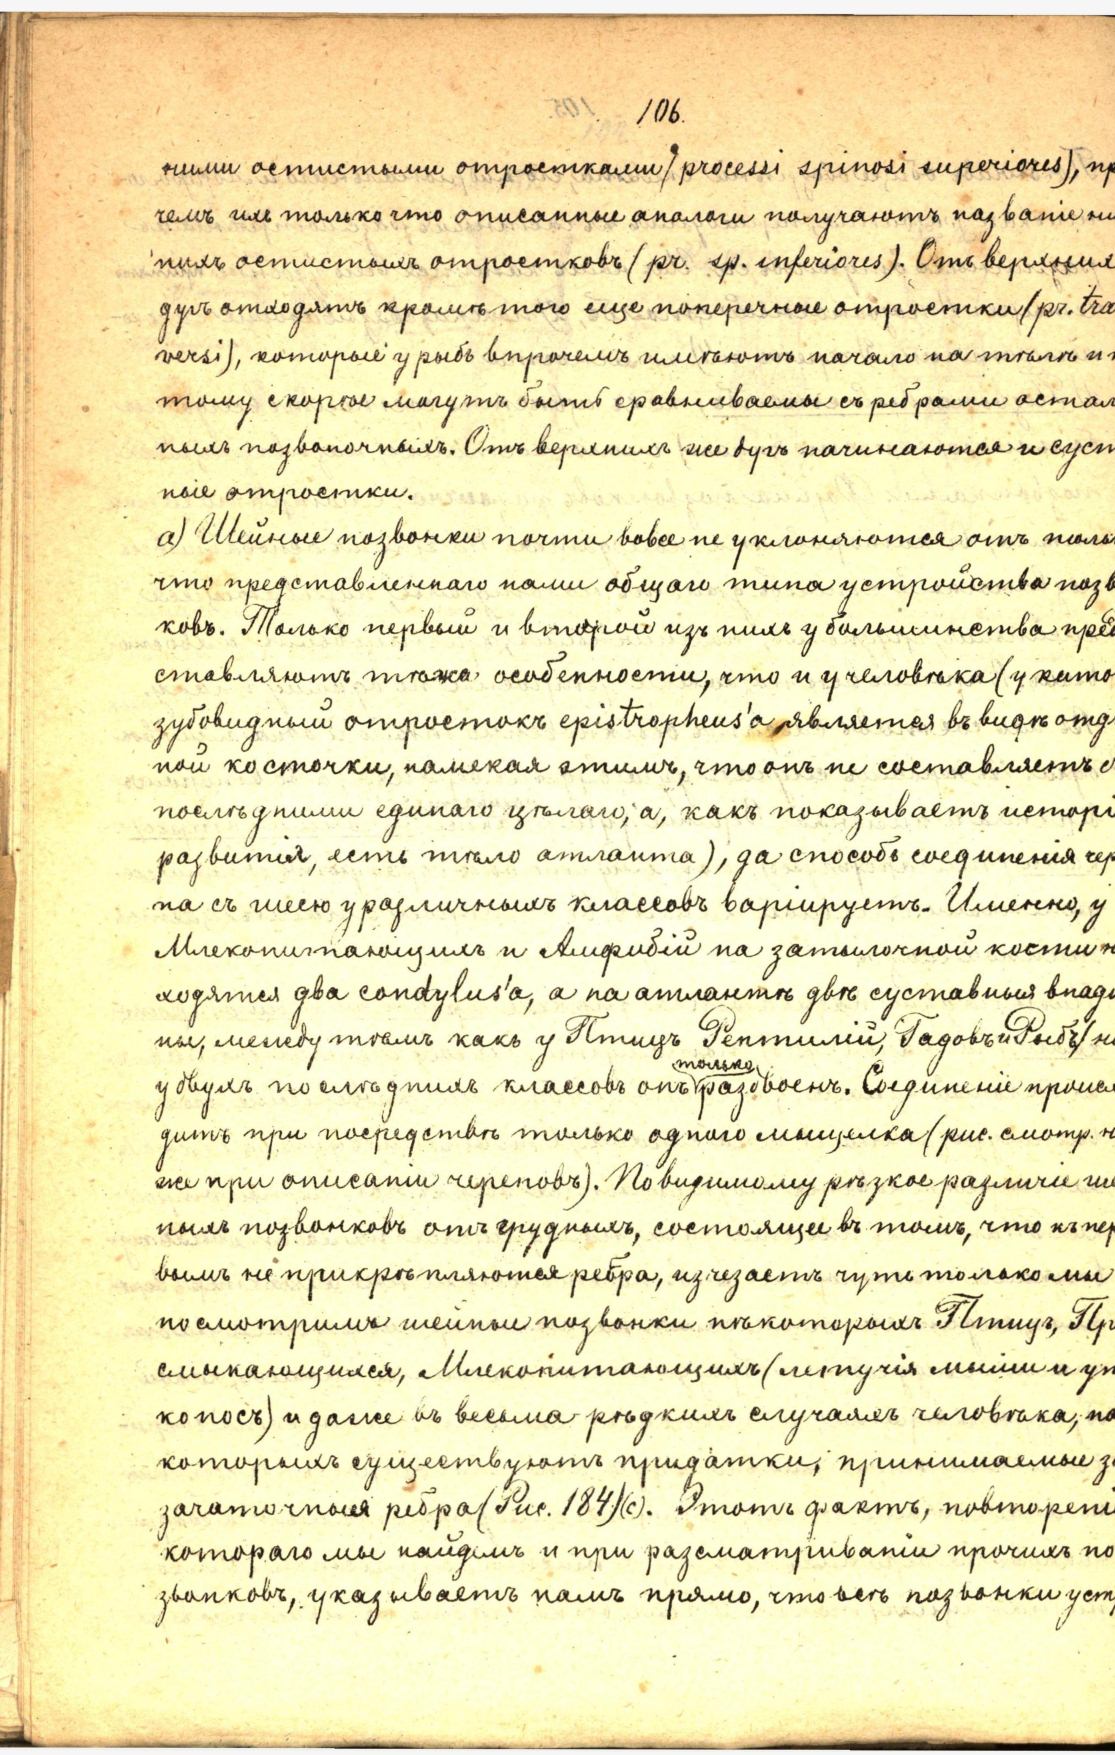 106.
ними остистыми отростками (processi spinosi superiores), пр
чемъ ихъ только что описанные аналоги получаютъ названіе ни
нихъ остистыхъ отростковъ (pr. sp. inferiores). Отъ верхнихъ
дугъ отходятъ кромѣ того еще поперечные отростки (pr. tra
versi), которые у рыбъ впрочемъ имѣютъ начало на тѣлѣ и п
тому скорѣе могутъ быть сравниваемы съ ребрами остал
ныхъ позвоночныхъ. Отъ верхнихъ же дугъ начинаются и суст
ные отростки.
а) Шейные позвонки почти вовсе не уклоняются отъ толь
что представленнаго нами общаго типа устройства позв
ковъ. Только первый и второй изъ нихъ у большинства пред
ставляютъ тѣже особенности, что и у человѣка (у кото
зубовидный отростокъ epistropheus'а является въ видѣ отд
ной косточки, намекая этимъ, что онъ не составляетъ с
послѣдними единаго цѣлаго, а, какъ показываетъ исторі
развитія, есть тѣло атланта), да способъ соединенія чер
па съ шеею у различныхъ классовъ варіируетъ. Именно, у
Млекопитающихъ и Амфибій на затылочной кости н
ходятся два condylus'а, а на атлантѣ двѣ суставныя впади
ны, между тѣмъ какъ у Птицъ Рептилій, Гадовъ и Рыбъ (н
у двухъ послѣднихъ классовъ онъ только раздвоенъ. Соединеніе происх
дитъ при посредствѣ только одного мыщелка (рис. смотр. н
же при описаніи череповъ). Повидимому рѣзкое различіе ше
ныхъ позвонковъ отъ грудныхъ, состоящее въ томъ, что къ пер
вымъ не прикрѣпляются ребра, изчезаетъ чуть только мы
посмотримъ шейные позвонки нѣкоторыхъ Птицъ, Пр
смыкающихся, Млекопитающихъ (летучія мыши и ут
коносъ) и даже въ весьма рѣдкихъ случаяхъ человѣка, на
которыхъ существуютъ придатки, принимаемые за
зачаточныя ребра (Рис. 184)(с). Этотъ фактъ, повторені
котораго мы найдемъ и при разсматриваніи прочихъ по
звонковъ, указываетъ намъ прямо, что всѣ позвонки уст